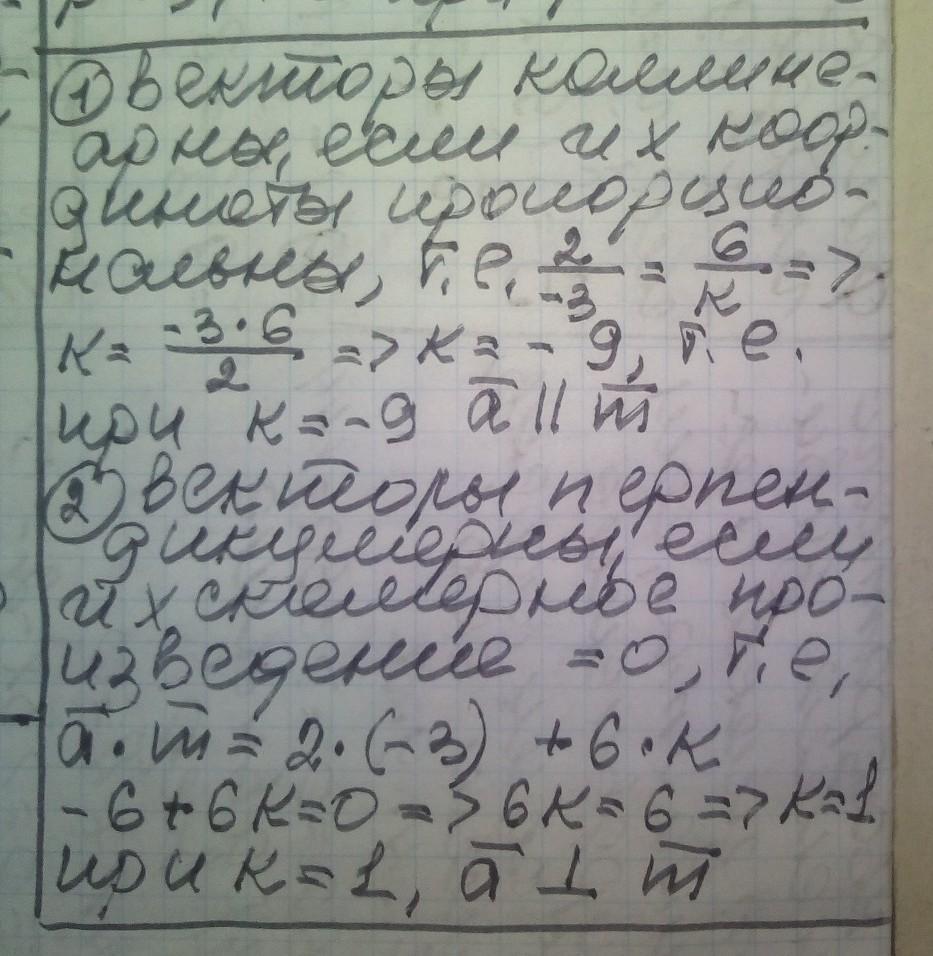 ① Векторы коллине-
арны, если их коор-
динаты пропорцио-
нальны, т.е. 2/-3 = 6/к =>
к = -3·6/2 => к = -9, т.е.
при к = -9 a̅ || m̅
② Векторы перпен-
дикулярны, если
их скалярное про-
изведение = 0, т.е,
a̅ · m̅ = 2·(-3) + 6·к
-6+6к=0 => 6к=6 => к=1
при к=1, a̅ ⊥ m̅